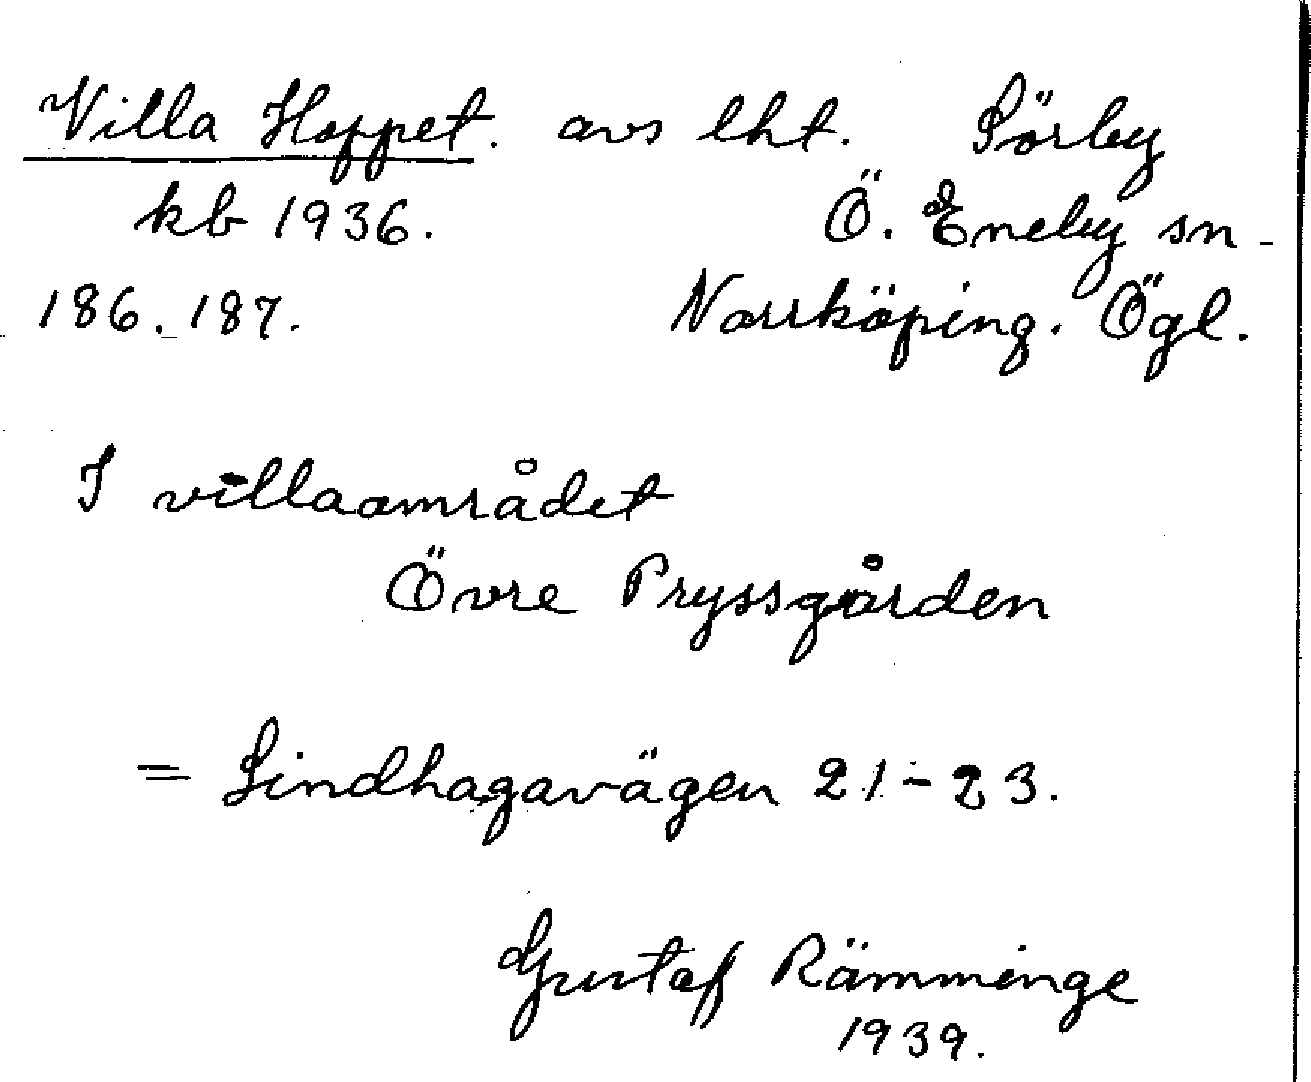 Villa Hoppet. avs lht. Sörby
kb 1936. Ö. Eneby sn
186. 187. Norrköping. Ögl.
I villaområdet
Övre Pryssgården
= Lindhagavägen 21-23.
Gustaf Rämminge
1939.